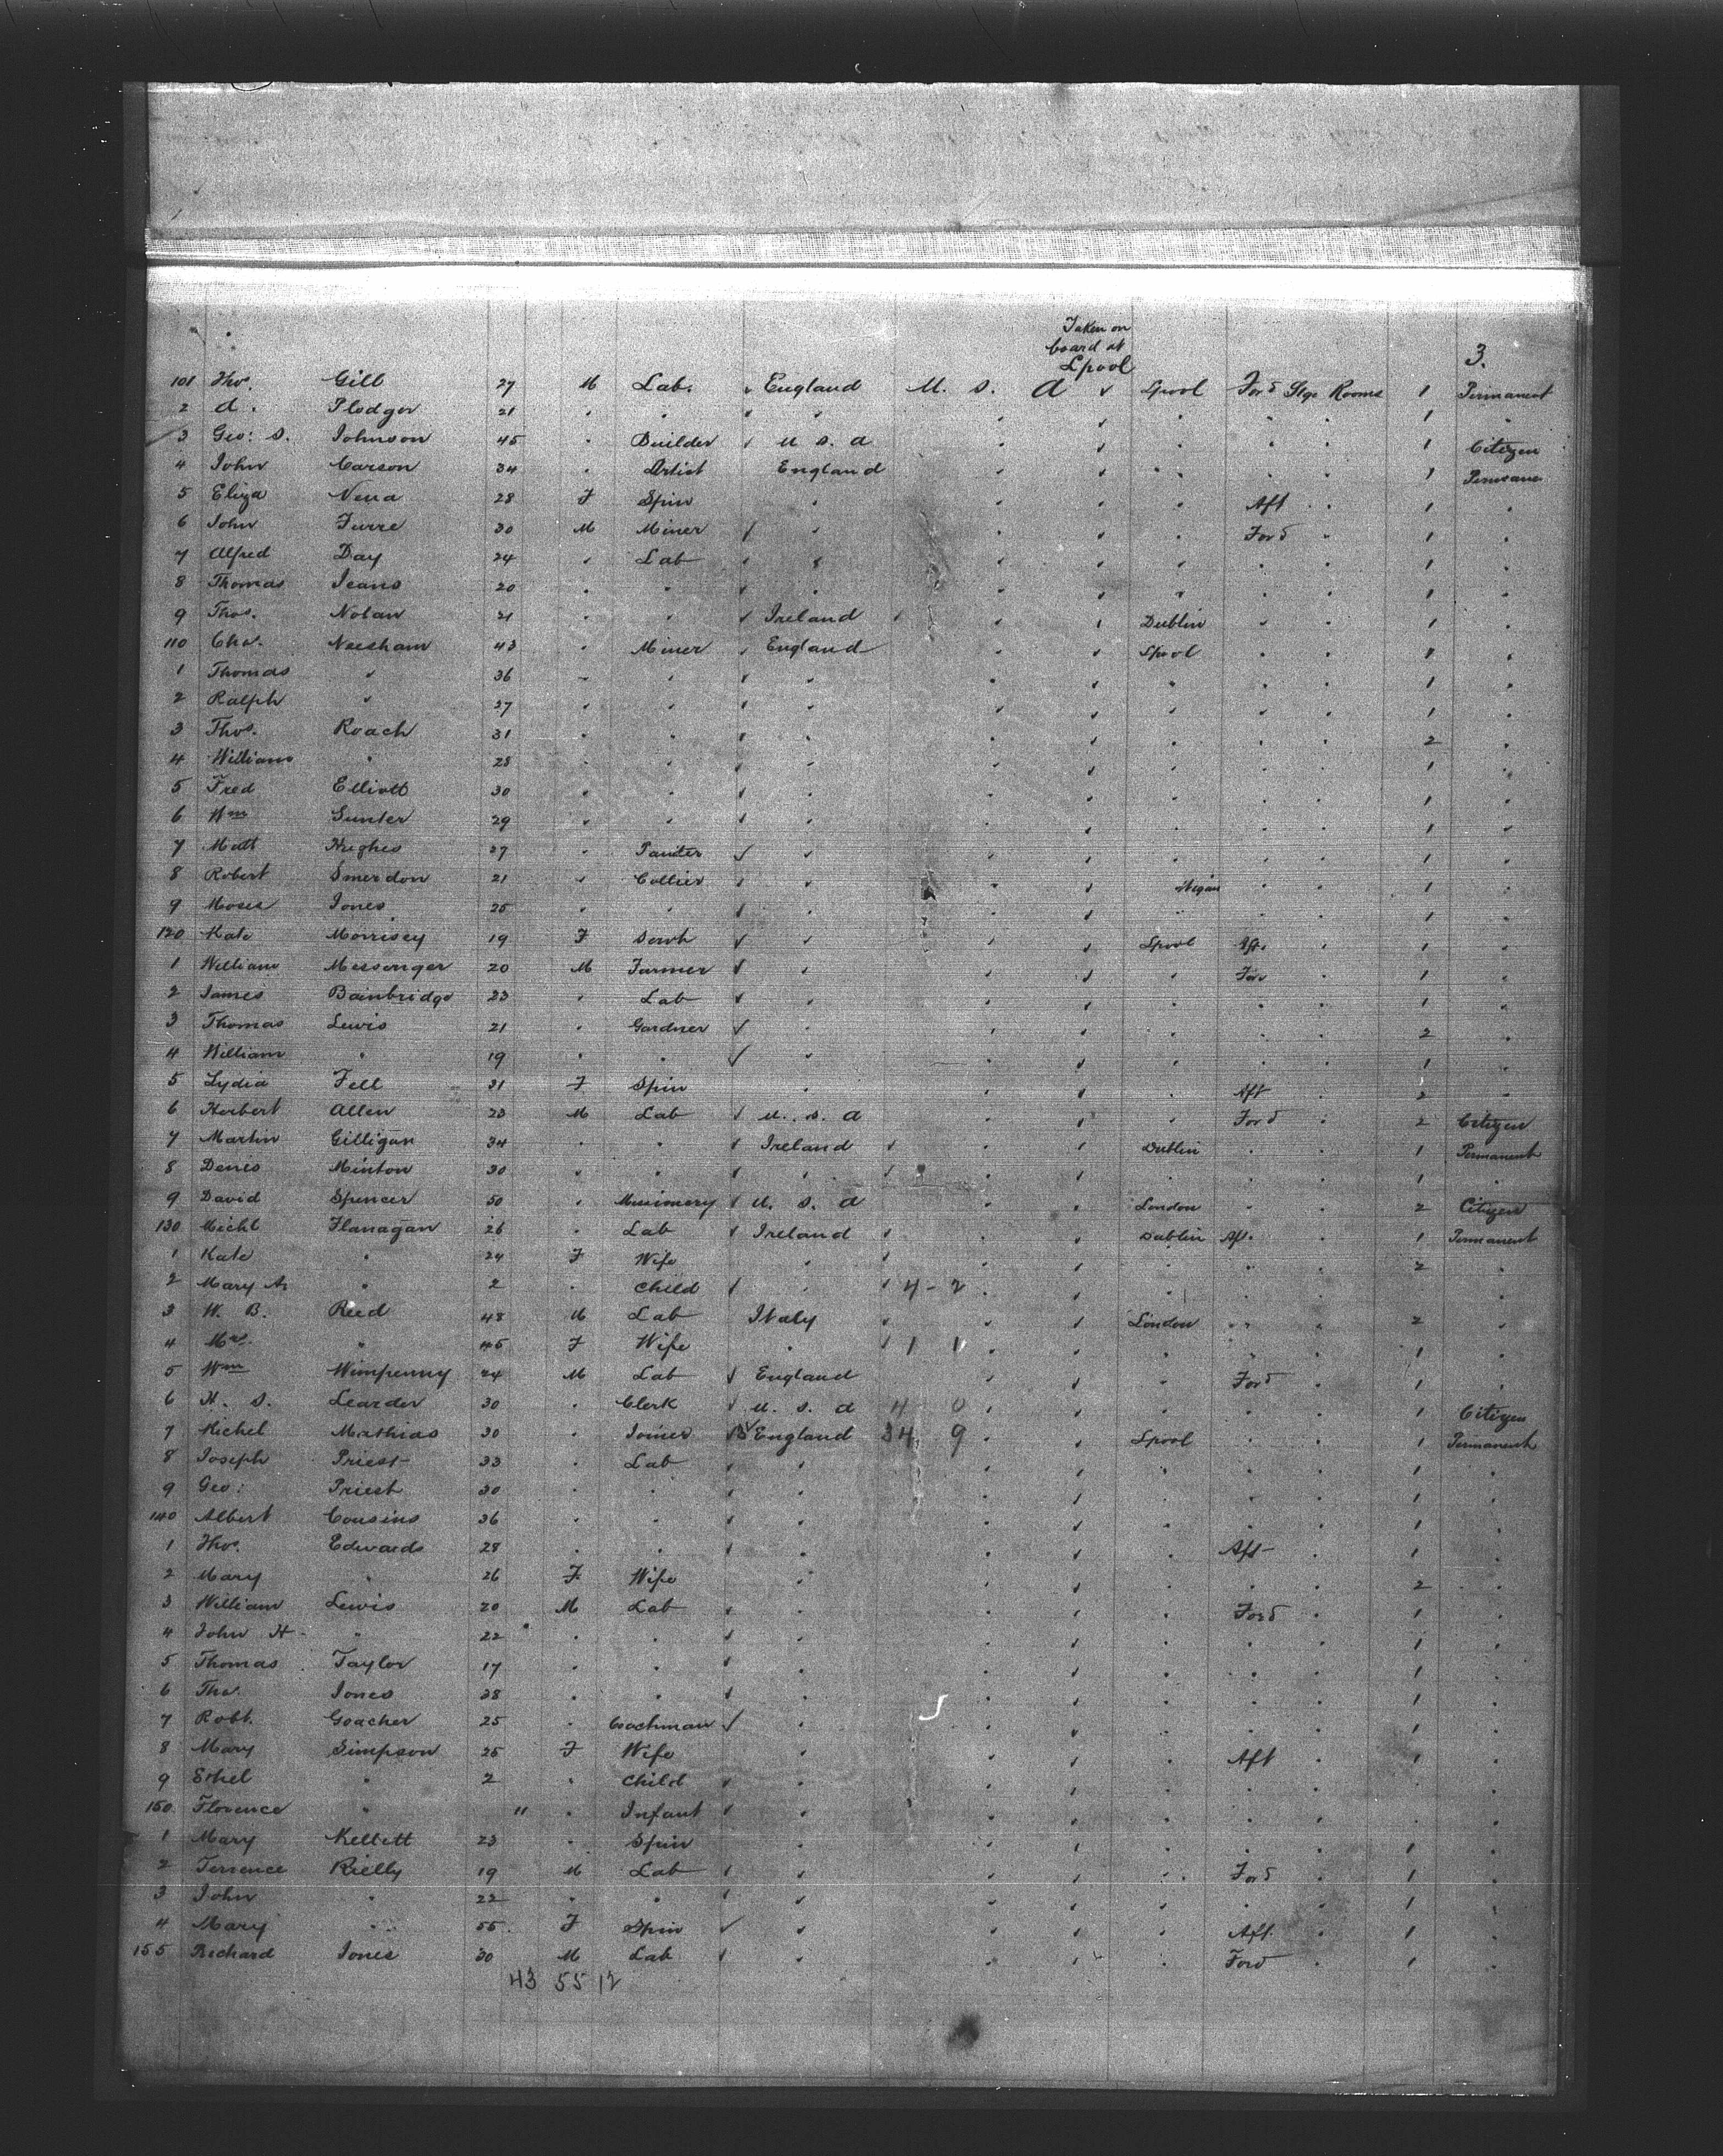 Taken on
board at
Lpool
3.
101 Thos. Gill 27 M Lab. England U. S. A Lpool Ford Stge Rooms 1 Permanent
2 A. Pledger 21 " " " " " " " 1 "
3 Geo: S. Johnson 45 " Builder U S. A " " " " 1 Citizen
4 John Carson 34 " Artist England " " " " 1 Permane
5 Eliza Nena 28 F Spin " " " " Aft " 1 "
6 John Furre 30 M Miner " " " " Ford " 1 "
7 Alfred Day 24 " Lab " " " " " " 1 "
8 Thomas Jeans 20 " " " " " " " " 1 "
9 Thos. Nolan 21 " " Ireland " " Dublin " " 1 "
110 Chas. Neesham 43 " Miner England " " Lpool " " 1 "
1 Thomas " 36 " " " " " " " " 1 "
2 Ralph " 27 " " " " " " " " 1 "
3 Thos. Roach 31 " " " " " " " " 2 "
4 William " 28 " " " " " " " " 1 "
5 Fred Elliott 30 " " " " " " " " 1 "
6 Wm Gunter 29 " " " " " " " " 1 "
7 Matt Hughes 27 " Painter " " " " " " 1 "
8 Robert Smerdon 21 " Collier " " " Wigan " " 1 "
9 Moses Jones 25 " " " " " " " 1 "
120 Kate Morrisey 19 F Servt " " " Lpool Aft " 1 "
1 William Messenger 20 M Farmer " " " " For " 1 "
2 James Bainbridge 23 " Lab " " " " " " 1 "
3 Thomas Lewis 21 " Gardner " " " " " " 2 "
4 William " 19 " " " " " " " " 1 "
5 Lydia Fell 31 F Spin " " " " Aft " 2 "
6 Herbert Allen 23 M Lab U. S. A " " " Ford " 2 Citizen
7 Martin Gilligan 34 " " Ireland " " Dublin " " 1 Permanent
8 Denis Minton 30 " " " " " " " " 1 "
9 David Spencer 50 " Missionery U. S. A " " London " " 2 Citizen
130 Michl Flanagan 26 " Lab Ireland " " Dublin Aft " 1 Permanent
1 Kate " 24 F Wife " " " " " " 2 "
2 Mary A. " 2 " Child " 4 - 2 " " " " " "
3 W. B. Reed 48 M Lab Italy " " London " " 2 "
4 Mrs. " 45 F Wife " 1 1 " " " " " 1 "
5 Wm Wimpenny 24 M Lab England " " " Ford " 1 "
6 H. S. Learder 30 " Clerk U. S. A 4 0 " " " " " 1 Citizen
7 Michel Mathias 30 " Joiner England 34 9 " " Lpool " " 1 Permanent
8 Joseph Priest 33 " Lab " " " " " " 1 "
9 Geo: Priest 30 " " " " " " " " 1 "
140 Albert Cousins 36 " " " " " " " " 1 "
1 Thos. Edwards 28 " " " " " " Aft " 1 "
2 Mary " 26 F Wife " " " " " " 2 "
3 William Lewis 20 M Lab " " " " Ford " 1 "
4 John H " 22 " " " " " " " " 1 "
5 Thomas Taylor 17 " " " " " " " " 1 "
6 Thos. Jones 28 " " " " " " " " 1 "
7 Robt. Goacher 25 " Coachman " " " " " " 1 "
8 Mary Simpson 25 F Wife " " " " Aft " 1 "
9 Ethel " 2 " Child " " " " " " "
150 Florence " 11 " Infant " " " " " " "
1 Mary Kellett 23 " Spin " " " " " " 1 "
2 Terrence Rielly 19 M Lab " " " " Ford " 1 "
3 John " 22 " " " " " " " " 1 "
4 Mary " 55 F Spin " " " " Aft " 1 "
155 Richard Jones 30 M Lab " " " " Ford " 1 "
43 55 12